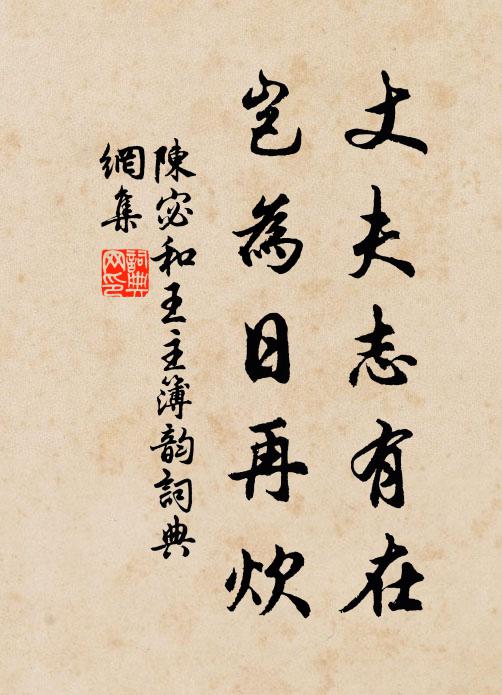 丈夫志有在
豈為日再炊
陳宓和王主簿韵詞典
網集
詞典
网印